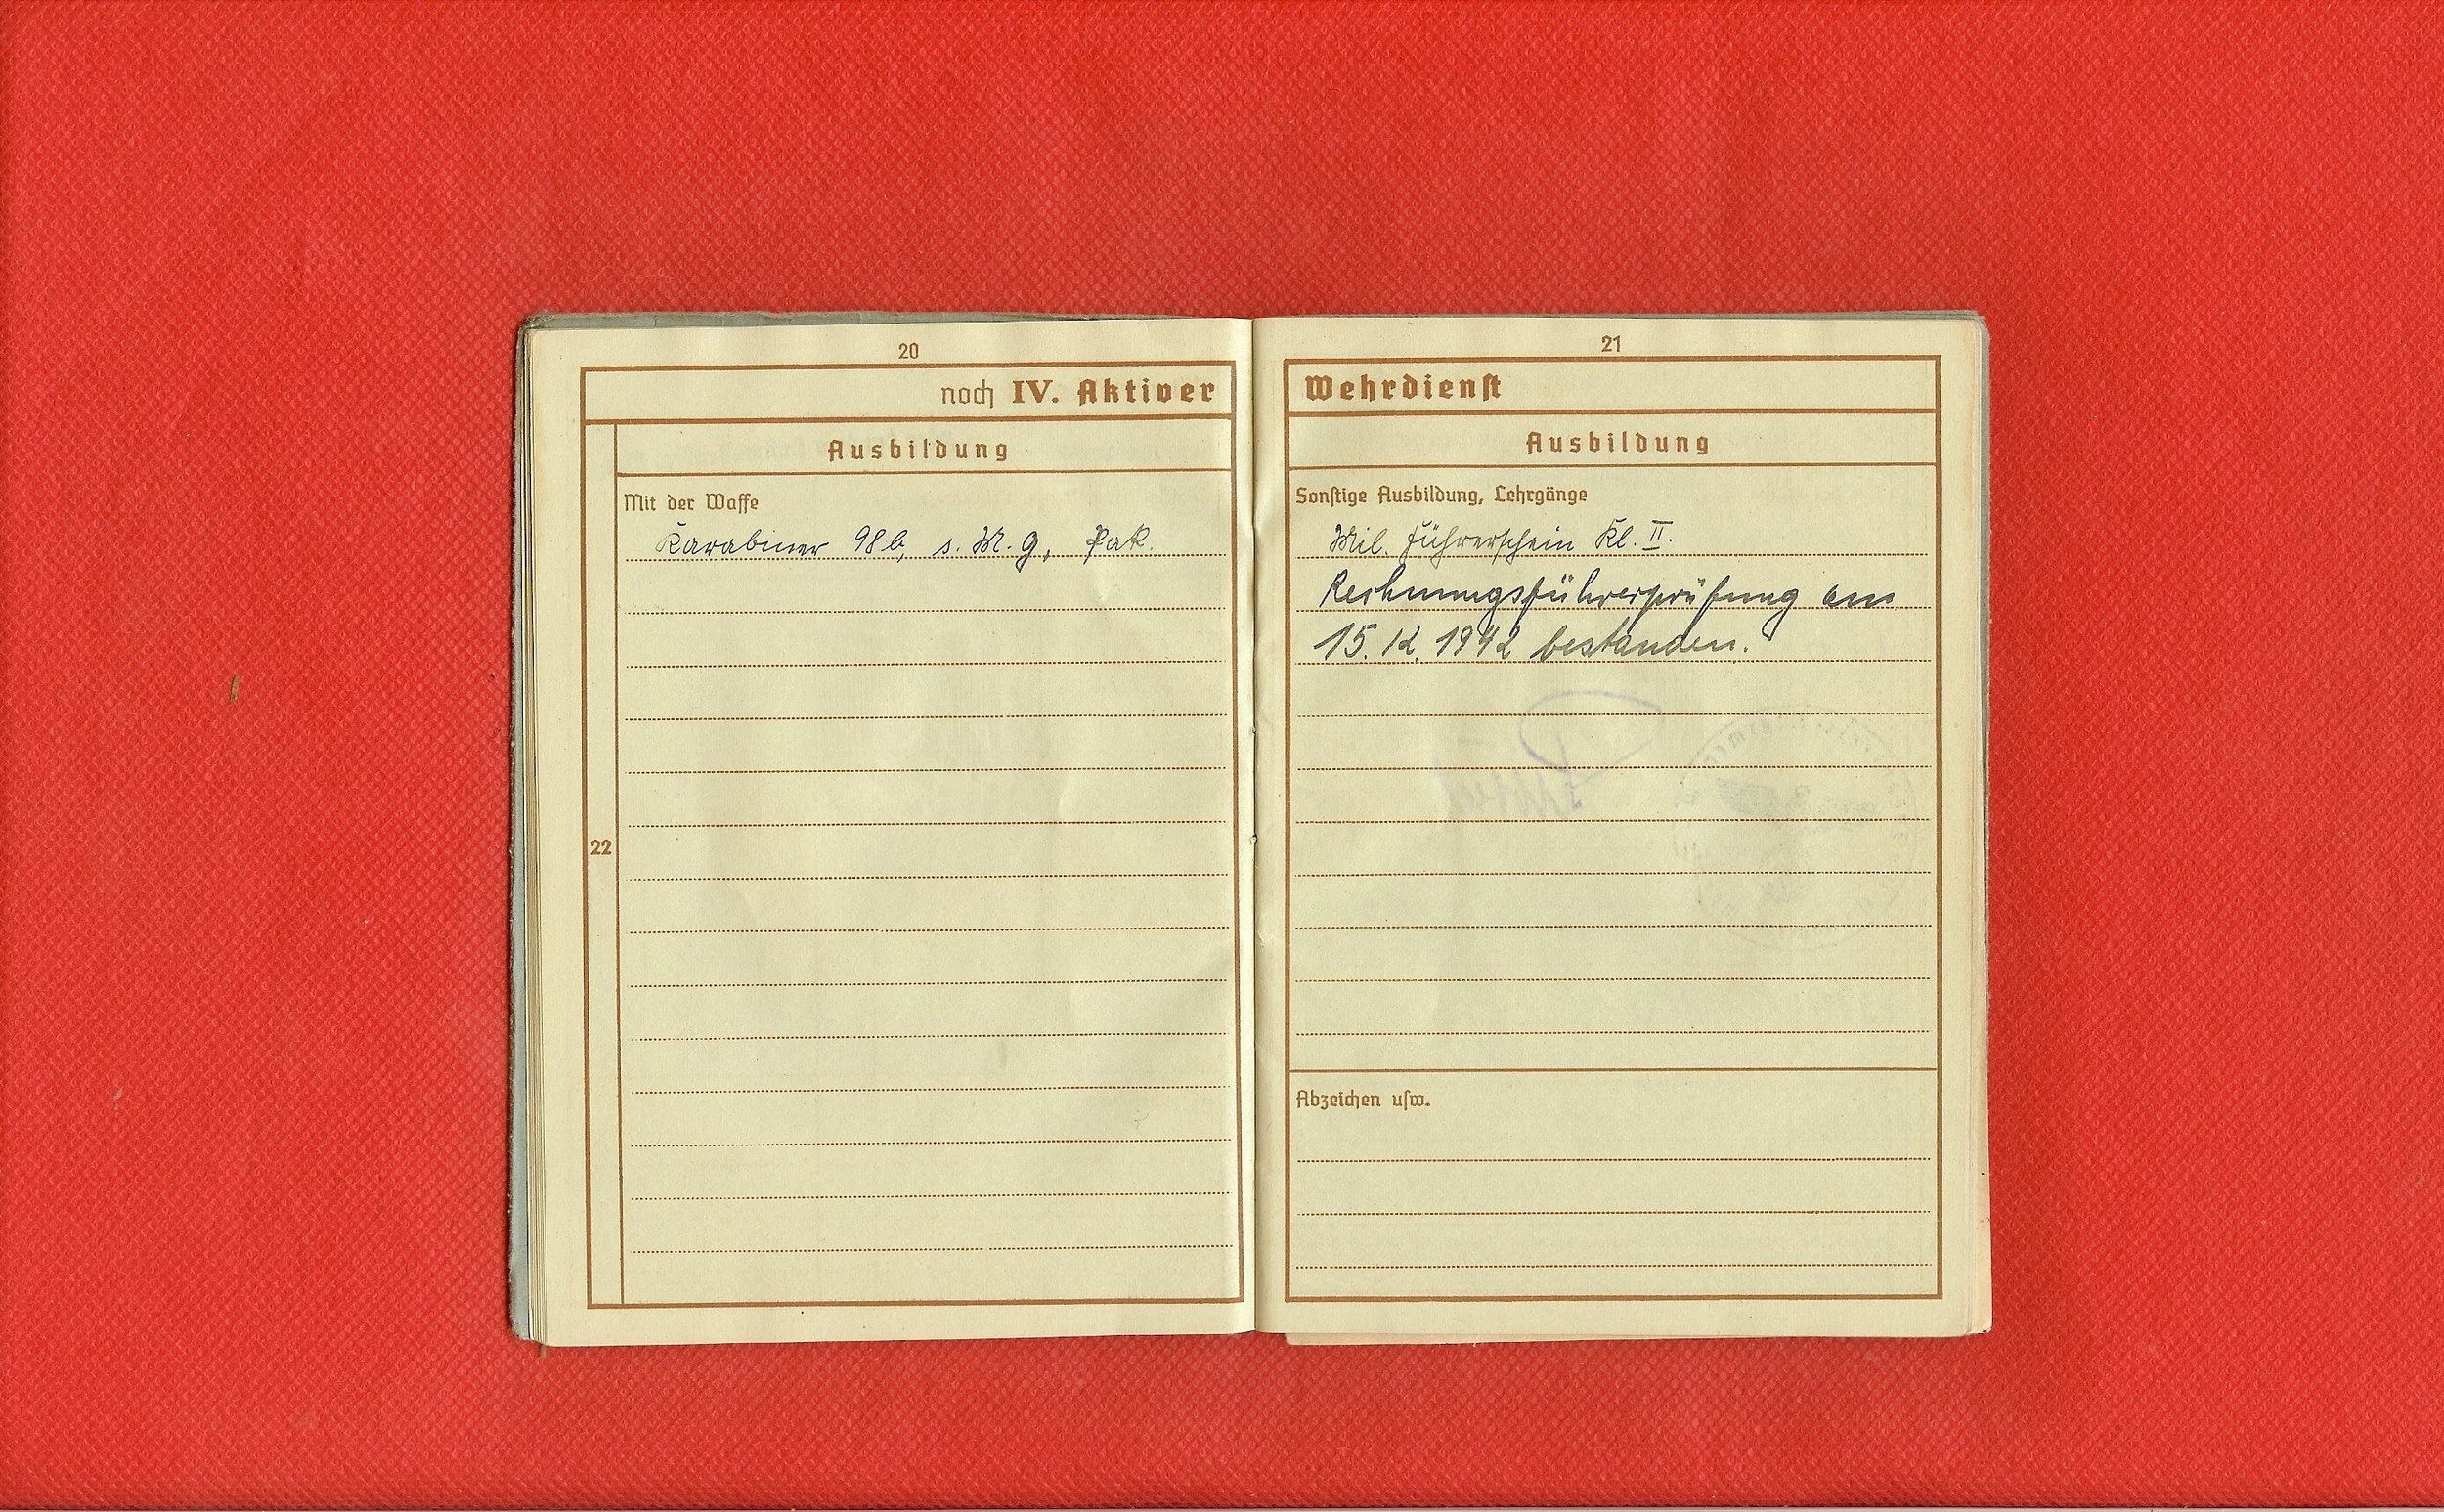 20
noch IV. Aktiver
Ausbildung
Mit der Waffe
Karabiner 98b, s. M. G., Pak.
22
21
Wehrdienst
Ausbildung
Sonstige Ausbildung, Lehrgänge
Mil. Führerschein Kl. II.
Rechnungsführerprüfung am
15. 12. 1942 bestanden.
Abzeichen usw.